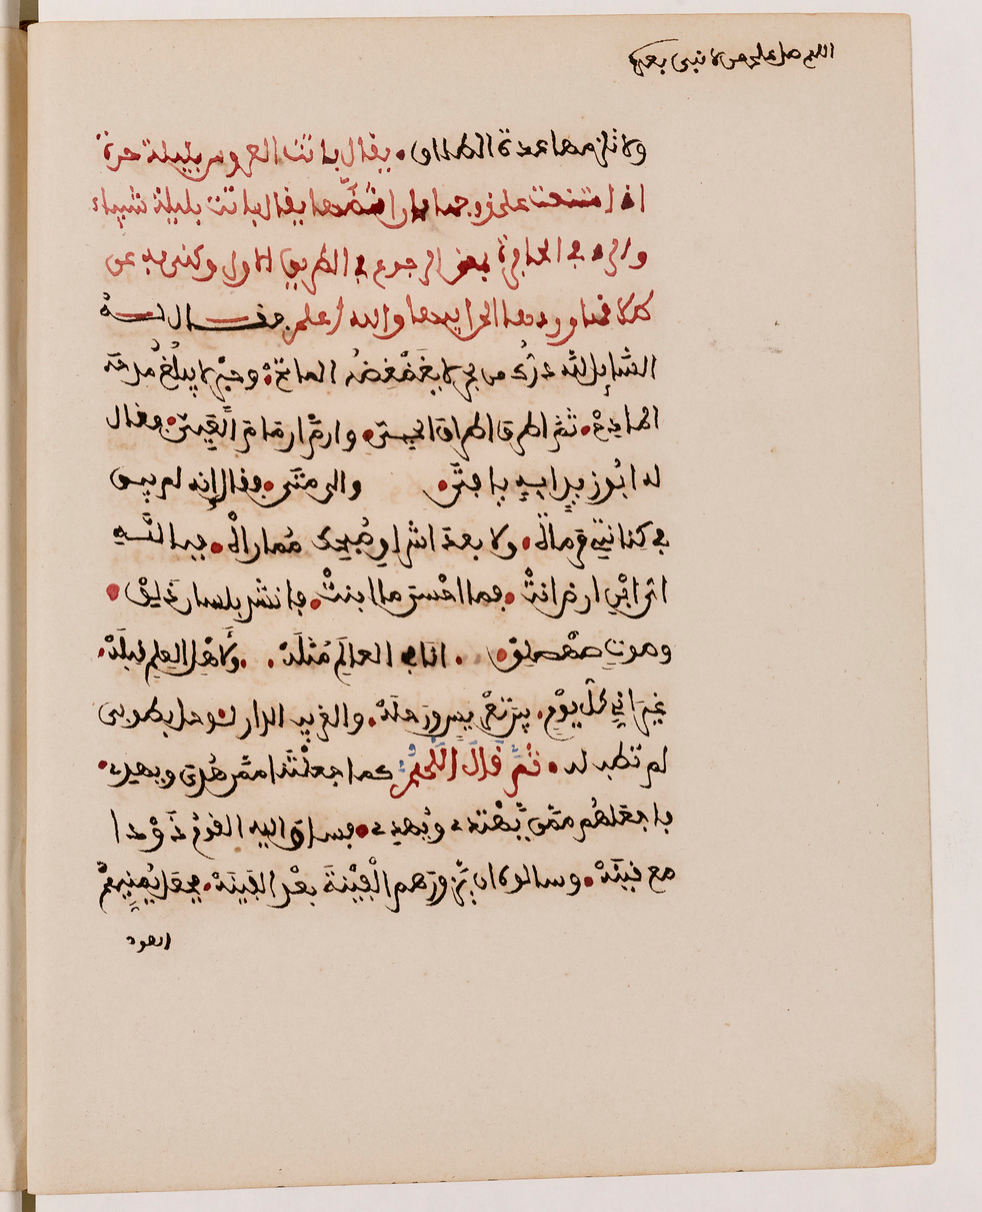 اللهم صل على من لا نبي بعده
ولا تلزمها عدة الطلاق. يقال باتت العروس بليلة حرة
اذا امتنعت على زوجها فإن افتضّها يقال باتت بليلة شيباء
والرد في الحافرة بمعنى الرجوع في الطريق الاول وكنى به عن
طلاقها وردها الى اهلها والله أعلم. فقال له
السّايل لله درّك من بحر لا يغضغضه الماتح. وحبر لا يبلغ مدحه
المادح. ثم اطرق اطراق الحيي. وارمّ ارمام العيي. فقال
له ابو زيد ايه يا فتى. والى متى. فقال إنه لم يبق
في كنانتي مرماة. ولا بعد اشراق صبحك مماراة. فبالله
اي ابن ارض انت. فما احسن ما ابنت. فانشد بلسان ذليق.
وصوت صهصليق. . انا في العالم مثله. . ولاهل العلم قبله.
غير اني كل يوم. بين تعريس ورحله. والغريب الدار لو حل بطوبى
لم تطب له. ثم قال اللهم كما جعلتنا ممن هدي ويهدي.
فاجعلهم ممن يهتدي ويهدي. فساق اليه القوم ذودا
مع قينة. وسالوه ان يزورهم الفينة بعد الفينة. يمنيهم
العود